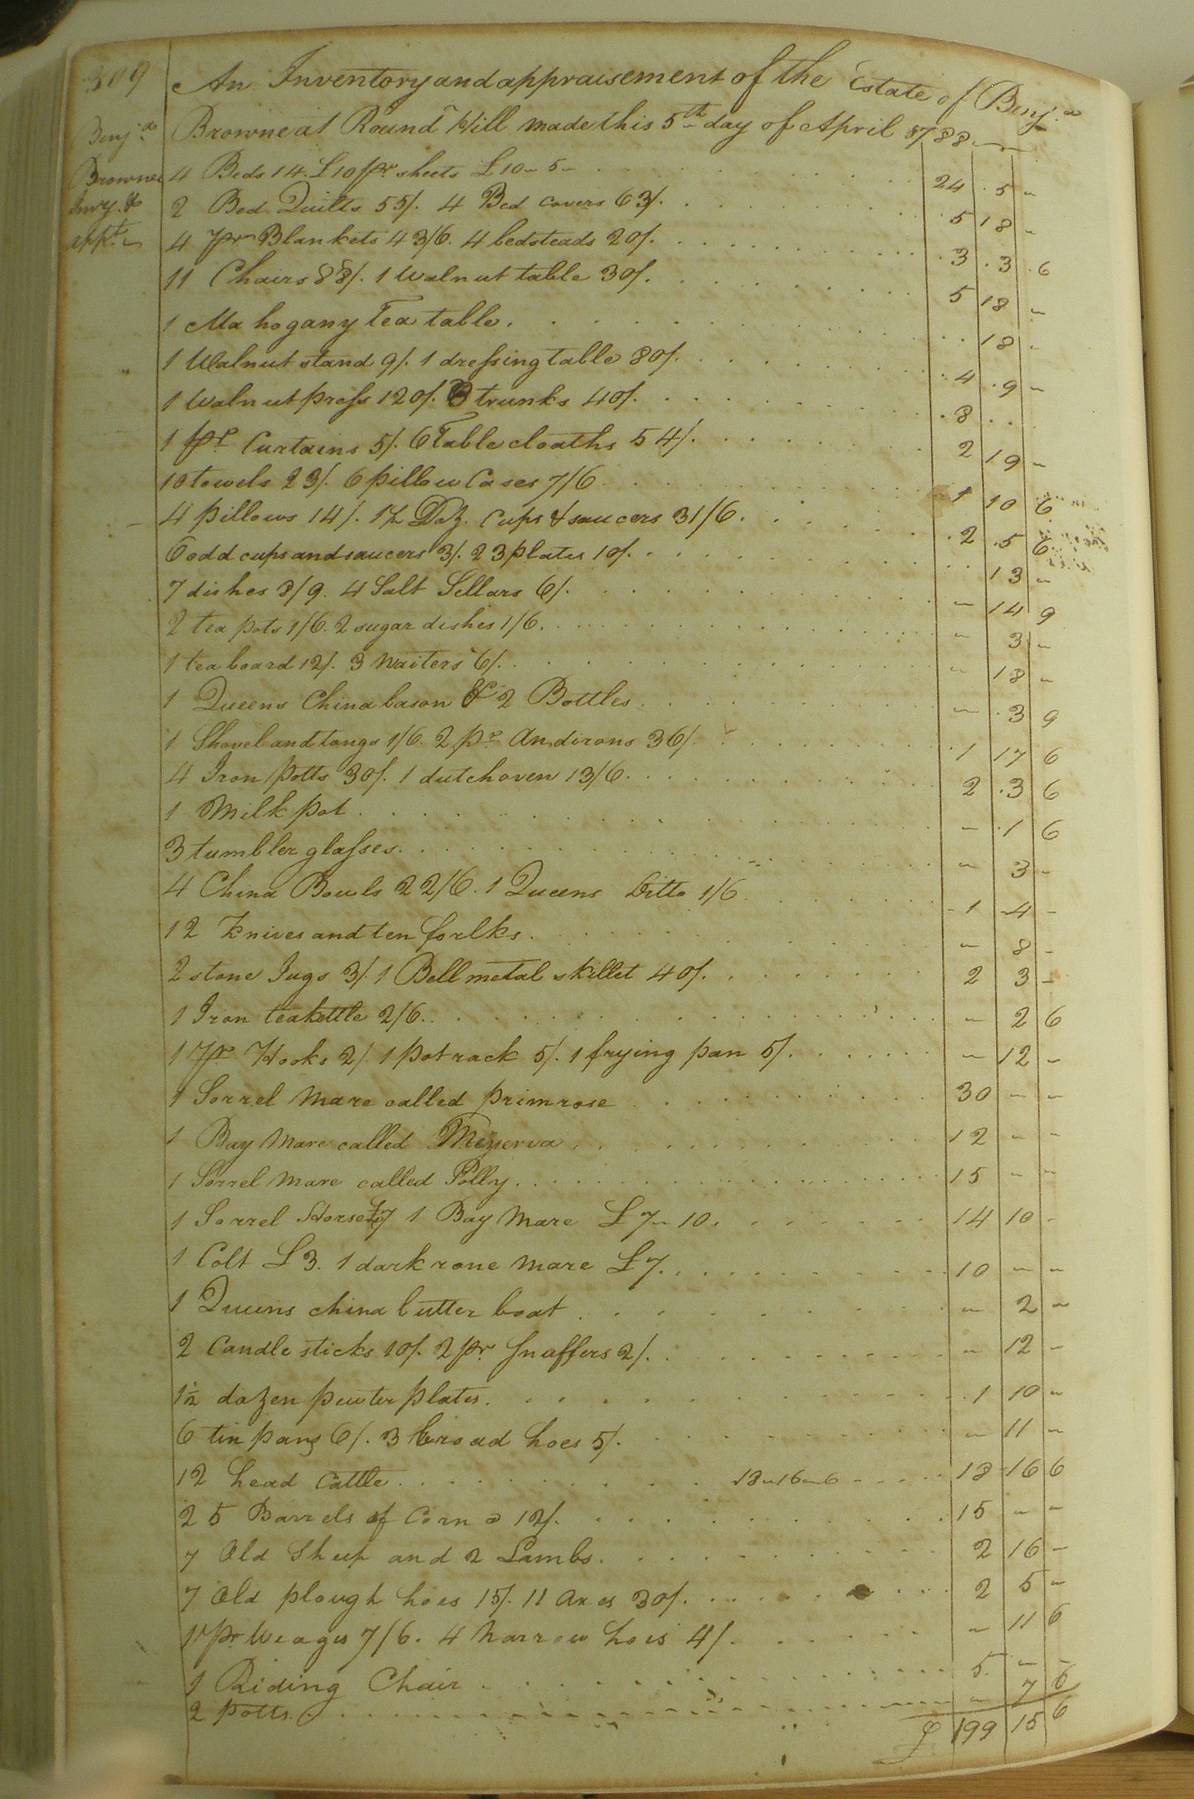 309
An Inventory and appraisement of the Estate of Benj.a
Benj.a
Browne at Round Hill made this 5th day of April 1788
Brownes
Invy. &
appt.
4 Beds 14. £10 pr sheets £10-5- 24 5 -
2 Bed Quilts 55/. 4 Bed covers 63/. 5 18 -
4 pr Blankets 43/6. 4 bedsteads 20/. 3 3 6
11 Chairs 88/. 1 Walnut table 30/. 5 18 -
1 Mahogany Tea table. 18 -
1 Walnut stand 9/. 1 dressing table 80/. 4 9 -
1 Walnut press 120/. 3 trunks 40/. 8
1 pr Curtains 5/. 6 Table cloaths 54/. 2 19 -
10 towels 23/. 6 pillow Cases 7/6 1 10 6
4 pillows 14/. 1½ Doz. Cups & saucers 31/6. 2 5 6
6 odd cups and saucers 3/. 23 plates 10/. 13 -
7 dishes 8/9. 4 Salt Sellars 6/. - 14 9
2 tea pots 1/6. 2 sugar dishes 1/6. - 3 -
1 tea board 12/. 3 Waiters 6/. - 18 -
1 Queens China bason & 2 Bottles - 3 9
1 Shovel and tongs 1/6. 2 pr Andirons 36/. 1 17 6
4 Iron Potts 30/. 1 dutch oven 13/6. 2 3 6
1 Milk pot - 1 6
3 tumbler glasses. - 3 -
4 China Bowls 22/6. 1 Queens Ditto 1/6 1 4 -
12 Knives and ten forlks. - 8 -
2 stone Jugs 3/. 1 Bell metal skillet 40/. 2 3 -
1 Iron teakettle 2/6. - 2 6
1 pr Hooks 2/. 1 pot rack 5/. 1 frying pan 5/. - 12 -
1 Sorrel Mare called primrose 30 - -
1 Bay Mare called Minerva 12 - -
1 Sorrel Mare called Polly 15 - -
1 Sorrel Horse £7 1 Bay Mare £7-10. 14 10 -
1 Colt £3. 1 dark rone Mare £7. 10 - -
1 Queens china butter boat - 2 -
2 Candle sticks 10/. 2 pr Snuffers 2/. - 12 -
1½ dozen pewter plates. 1 10 -
6 tin pans 6/. 3 broad hoes 5/. - 11 -
12 head Cattle 18-16-6 18 16 6
25 Barrels of Corn @ 12/. 15 - -
7 Old Sheep and 2 Lambs. 2 16 -
7 Old plough hoes 15/. 11 Axes 30/. 2 5 -
1 pr Weages 7/6. 4 Narrow hoes 4/. - 11 6
1 Riding Chair 5 - -
2 Potts. - 7 6
£ 199 15 6